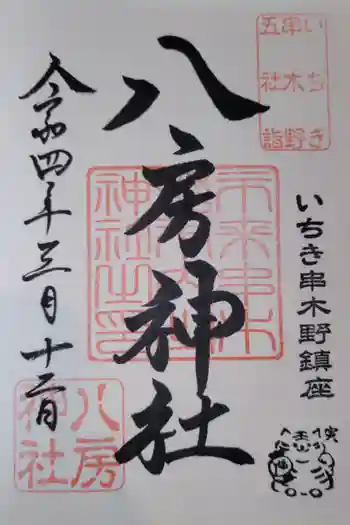 いちき
串木野
五社詣
いちき串木野鎮座
八房神社
令和四年三月十二日
八房
神社